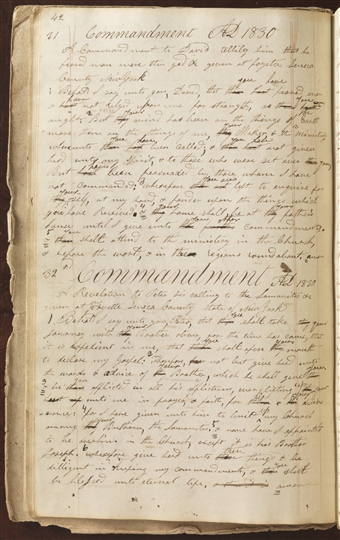 42
31 Commandment AD 1830
A Commandment to David telling him that he
feared man more than god & given at Fayette Seneca
County New York
1 Behold I say unto you, David, that thou hast feared man
& hast not relied upon me for strength, as thou
ought But thy mind has been on the things of the Earth
more than on the things of me, thy Maker, & the Ministry
whereunto thou hast been Called; & thou hast not given
heed unto my Spirit, & to those who were set over
But hast been persuaded by those whom I have
not Commanded; Wherefore thou art left to enquire for
at my hand, & ponder upon the things which
you have Received; & thy home shall be at thy father's
house until I give unto thee commandments.
thou shalt attend to the ministry in the Church,
& before the world, & in the regions round about, amen
32 Commandment AD 1830
A Revelation to Peter his calling to the Lamanites &c
given at Fayette Seneca County State of New York
1 Behold I say unto you Peter, that thou shalt take thy
Journey with thy Brother Oliver, for the time has come, that
it is expedient in me, that thou shalt open thy mouth
to declare my Gospel; Therefore, fear not but give heed unto
the words & advice of thy Brother, which he shall give
& be thou afflicted in all his afflictions, ever lifting up thy
heart unto me in prayer, & faith, for his & thy deliver
ance: for I have given unto him to build my Church
among thy Brethren, the Lamanites, & none have I appointed
to be over him in the Church, except it is his Brother
Joseph. Wherefore give heed unto these things & be
diligent in keeping my commandments, & thou shalt
be blessed unto eternal life, amen